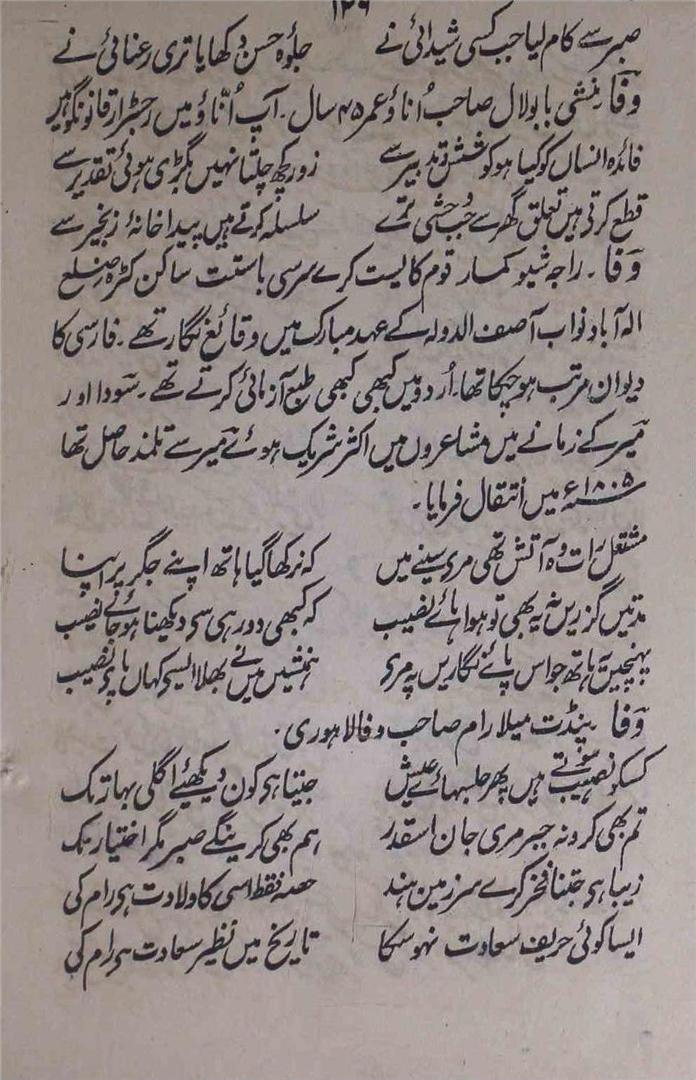 ۱۲۹
صبر سے کام لیا جب کسی شیدائی نے جلوۂ حسن دکھایا تری رعنائی نے
وفا منشی بابولال صاحب اُناؤ عمر ۴۵ سال ۔ آپ اُنّاؤ میں رجسٹرار قانونگو ہیں
فائدہ انساں کو کیا ہو کوشش تدبیر سے زور کچھ چلتا نہیں بگڑی ہوئی تقدیر سے
قطع کرتی ہیں تعلق گھر سے جب وحشی ترے سلسلہ کرتے ہیں پیدا خانۂ زنجیر سے
وفا ۔ راجہ شیو کمار قوم کالیست کرے سرسی باستت ساکن کٹرہ ضلع
الہ آباد نواب آصف الدولہ کے عہد مبارک میں وقائع نگار تھے ۔ فارسی کا
دیوان مرتب ہو چکا تھا۔ اُردو میں کبھی کبھی طبع آزمائی کرتے تھے ۔ سودا اور
میر کے زمانے میں مشاعروں میں اکثر شریک ہوئے میر سے تلمذ حاصل تھا
۱۸۰۵ء میں انتقال فرمایا ۔
مشتعل رات وہ آتش تھی مری سینے میں کہ نہ رکھا گیا ہاتھ اپنے جگر پر اپنا
مدتیں گزریں نہ یہ بھی تو ہوا ہائے نصیب کہ کبھی دور ہی سی دیکھنا ہو جائے نصیب
پہنچیں یہ ہاتھ جو اس پائے نگاریں پہ مری ہمنشیں میں نے بھلا ایسی کہاں پائے نصیب
وفا پنڈت میلا رام صاحب وفا لاہوری ۔
کسکو نصیب ہوتے ہیں پھر جلسہائے عیش جیتا ہی کون دیکھئے اگلی بہار تک
تم بھی کرو نہ جبر مری جان اسقدر ہم بھی کرینگے صبر مگر اختیار تک
زیبا ہی جتنا فخر کرے سر زمین ہند حصہ فقط اسی کا ولادت ہی رام کی
ایسا کوئی حریف سعادت نہو سکا تاریخ میں نظیر سعادت ہی رام کی